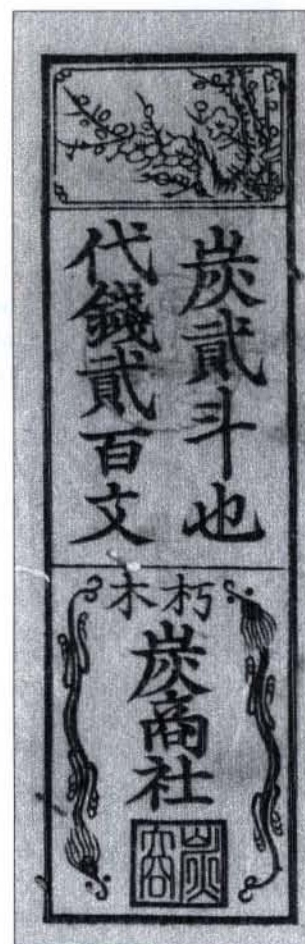 炭貳斗也
代錢貳百文
朽木
炭商社
炭商